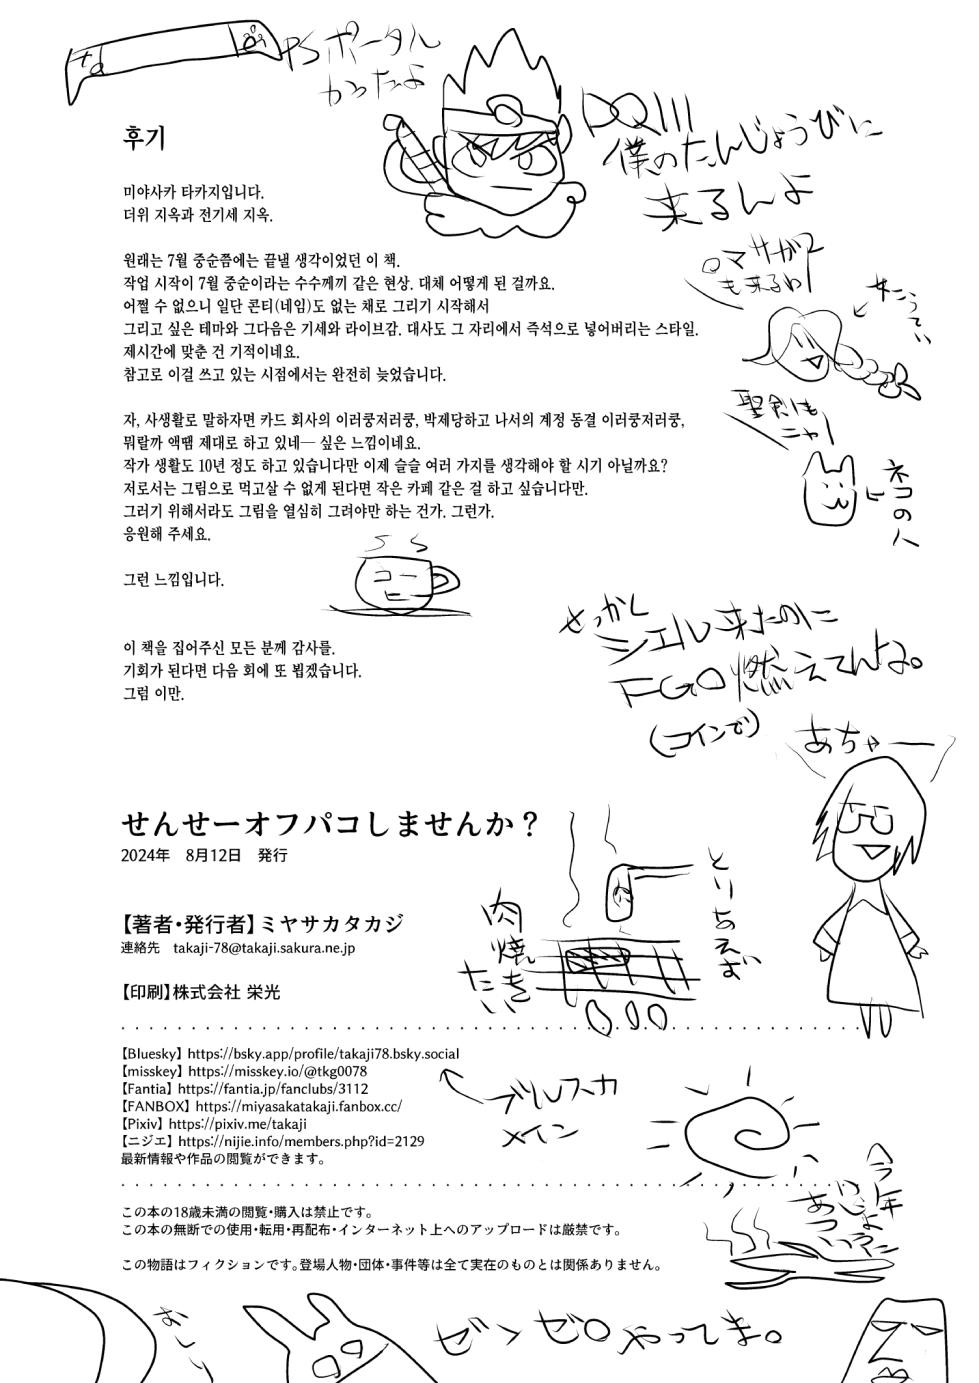 PSポータル
かったよ
DQIII
僕のたんじょうびに
来るんよ
후기
미야사카 타카지입니다.
더위 지옥과 전기세 지옥.
원래는 7월 중순쯤에는 끝낼 생각이었던 이 책.
작업 시작이 7월 중순이라는 수수께끼 같은 현상. 대체 어떻게 된 걸까요.
어쩔 수 없으니 일단 콘티(네임)도 없는 채로 그리기 시작해서
그리고 싶은 테마와 그다음은 기세와 라이브감. 대사도 그 자리에서 즉석으로 넣어버리는 스타일.
제시간에 맞춘 건 기적이네요.
참고로 이걸 쓰고 있는 시점에서는 완전히 늦었습니다.
ロマサガ2
も来るわ
聖剣も
ニャ
ネコの人
자, 사생활로 말하자면 카드 회사의 이러쿵저러쿵, 박제당하고 나서의 계정 동결 이러쿵저러쿵,
뭐랄까 액땜 제대로 하고 있네― 싶은 느낌이네요.
작가 생활도 10년 정도 하고 있습니다만 이제 슬슬 여러 가지를 생각해야 할 시기 아닐까요?
저로서는 그림으로 먹고살 수 없게 된다면 작은 카페 같은 걸 하고 싶습니다만.
그러기 위해서라도 그림을 열심히 그려야만 하는 건가. 그런가.
응원해 주세요.
그런 느낌입니다.
이 책을 집어주신 모든 분께 감사를.
기회가 된다면 다음 회에 또 뵙겠습니다.
그럼 이만.
コーヒー
せっかく
シエル来たのに
FGO燃えてんよ。
(コインで)
あちゃー
せんせーオフパコしませんか？
2024年　8月12日　発行
【著者・発行者】ミヤサカタカジ
連絡先　takaji-78@takaji.sakura.ne.jp
【印刷】株式会社 栄光
とりあえず
肉焼き
たい
【Bluesky】 https://bsky.app/profile/takaji78.bsky.social
【misskey】 https://misskey.io/@tkg0078
【Fantia】 https://fantia.jp/fanclubs/3112
【FANBOX】 https://miyasakatakaji.fanbox.cc/
【Pixiv】 https://pixiv.me/takaji
【ニジエ】 https://nijie.info/members.php?id=2129
最新情報や作品の閲覧ができます。
ブルスカ
メイン
この本の18歳未満の閲覧・購入は禁止です。
この本の無断での使用・転用・再配布・インターネット上へのアップロードは厳禁です。
この物語はフィクションです。登場人物・団体・事件等は全て実在のものとは関係ありません。
今年
おしり
ゼンゼロやってま。